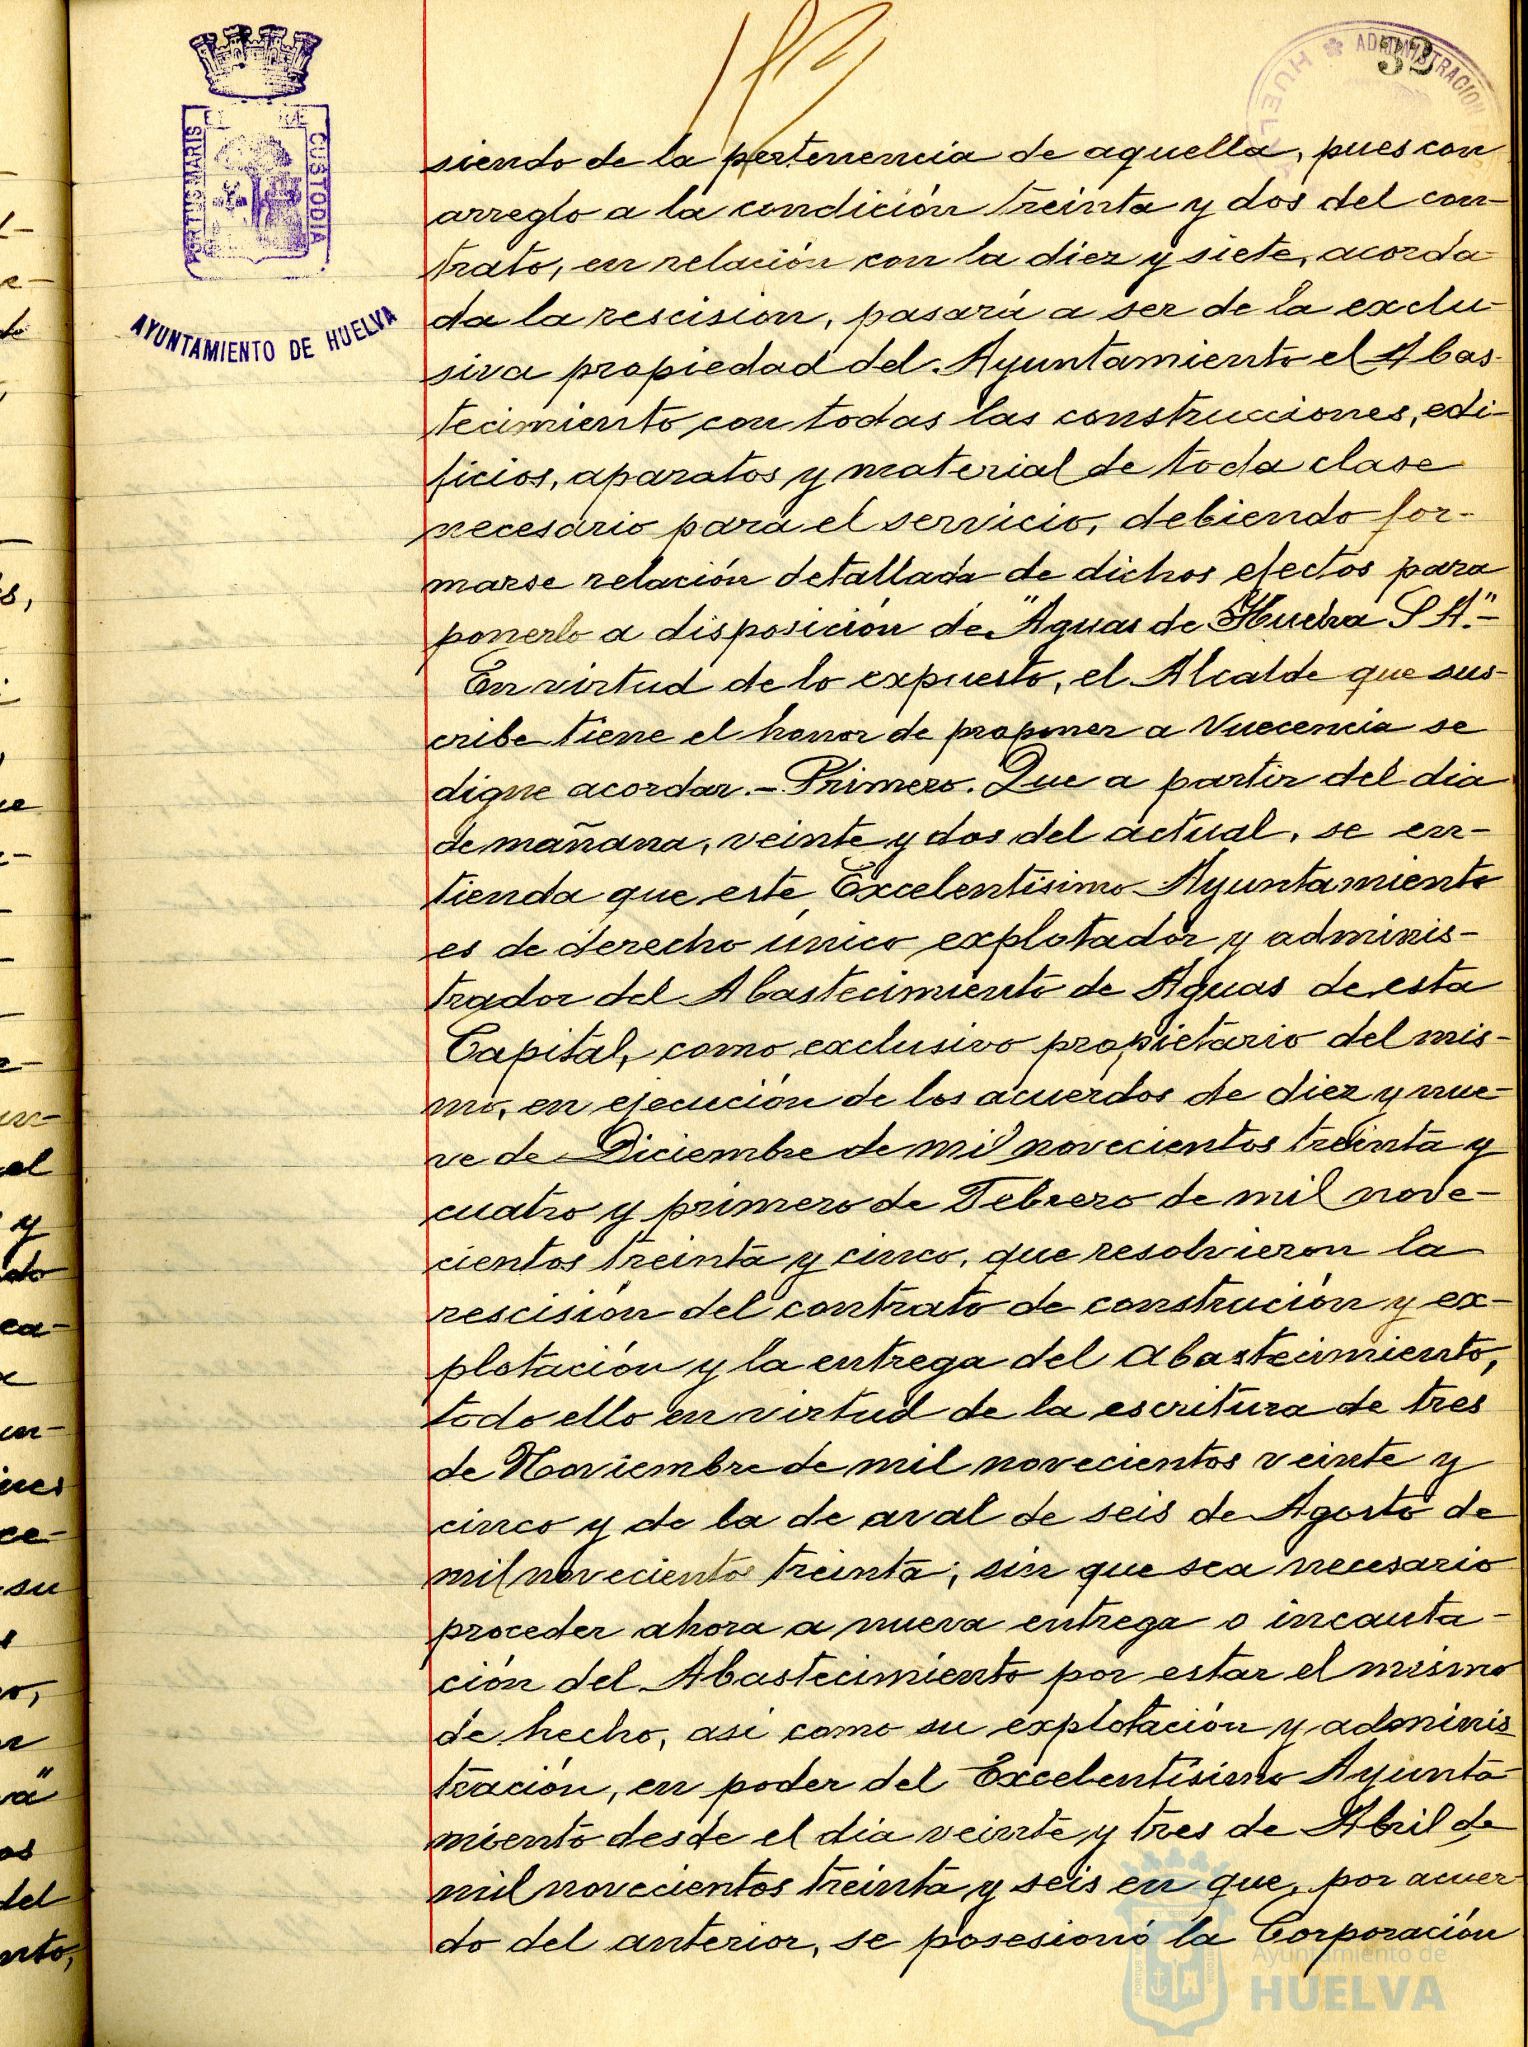 33
ADMINISTRACION
HUELVA
PORTUS MARIS
ET TERRAE
CUSTODIA
AYUNTAMIENTO DE HUELVA
siendo de la pertenencia de aquella, pues con
arreglo a la condición treinta y dos del con-
trato, en relación con la diez y siete, acorda-
da la rescision, pasará a ser de la exclu-
siva propiedad del Ayuntamiento el Abas-
tecimiento con todas las construcciones, edi-
ficios, aparatos y material de toda clase
necesario para el servicio, debiendo for-
marse relación detallada de dichos efectos para
ponerlo a disposición de "Aguas de Huelva S A".-
En virtud de lo expuesto, el Alcalde que sus-
cribe tiene el honor de proponer a Vuecencia se
digne acordar.- Primero. Que a partir del dia
de mañana, veinte y dos del actual, se en-
tienda que este Excelentísimo Ayuntamiento
es de derecho único explotador y adminis-
trador del Abastecimiento de Aguas de esta
Capital, como exclusivo propietario del mis-
mo, en ejecución de los acuerdos de diez y nue-
ve de Diciembre de mil novecientos treinta y
cuatro y primero de Febrero de mil nove-
cientos treinta y cinco, que resolvieron la
rescisión del contrato de construción y ex-
plotación y la entrega del abastecimiento,
todo ello en virtud de la escritura de tres
de Noviembre de mil novecientos veinte y
cinco y de la de aval de seis de Agosto de
mil novecientos treinta; sin que sea necesario
proceder ahora a nueva entrega o incauta-
ción del Abastecimiento por estar el mismo
de hecho, asi como su explotación y adminis
tración, en poder del Excelentísimo Ayunta-
miento desde el dia veinte y tres de Abril de
mil novecientos treinta y seis en que, por acuer-
do del anterior, se posesionó la Corporación
Ayuntamiento de
HUELVA